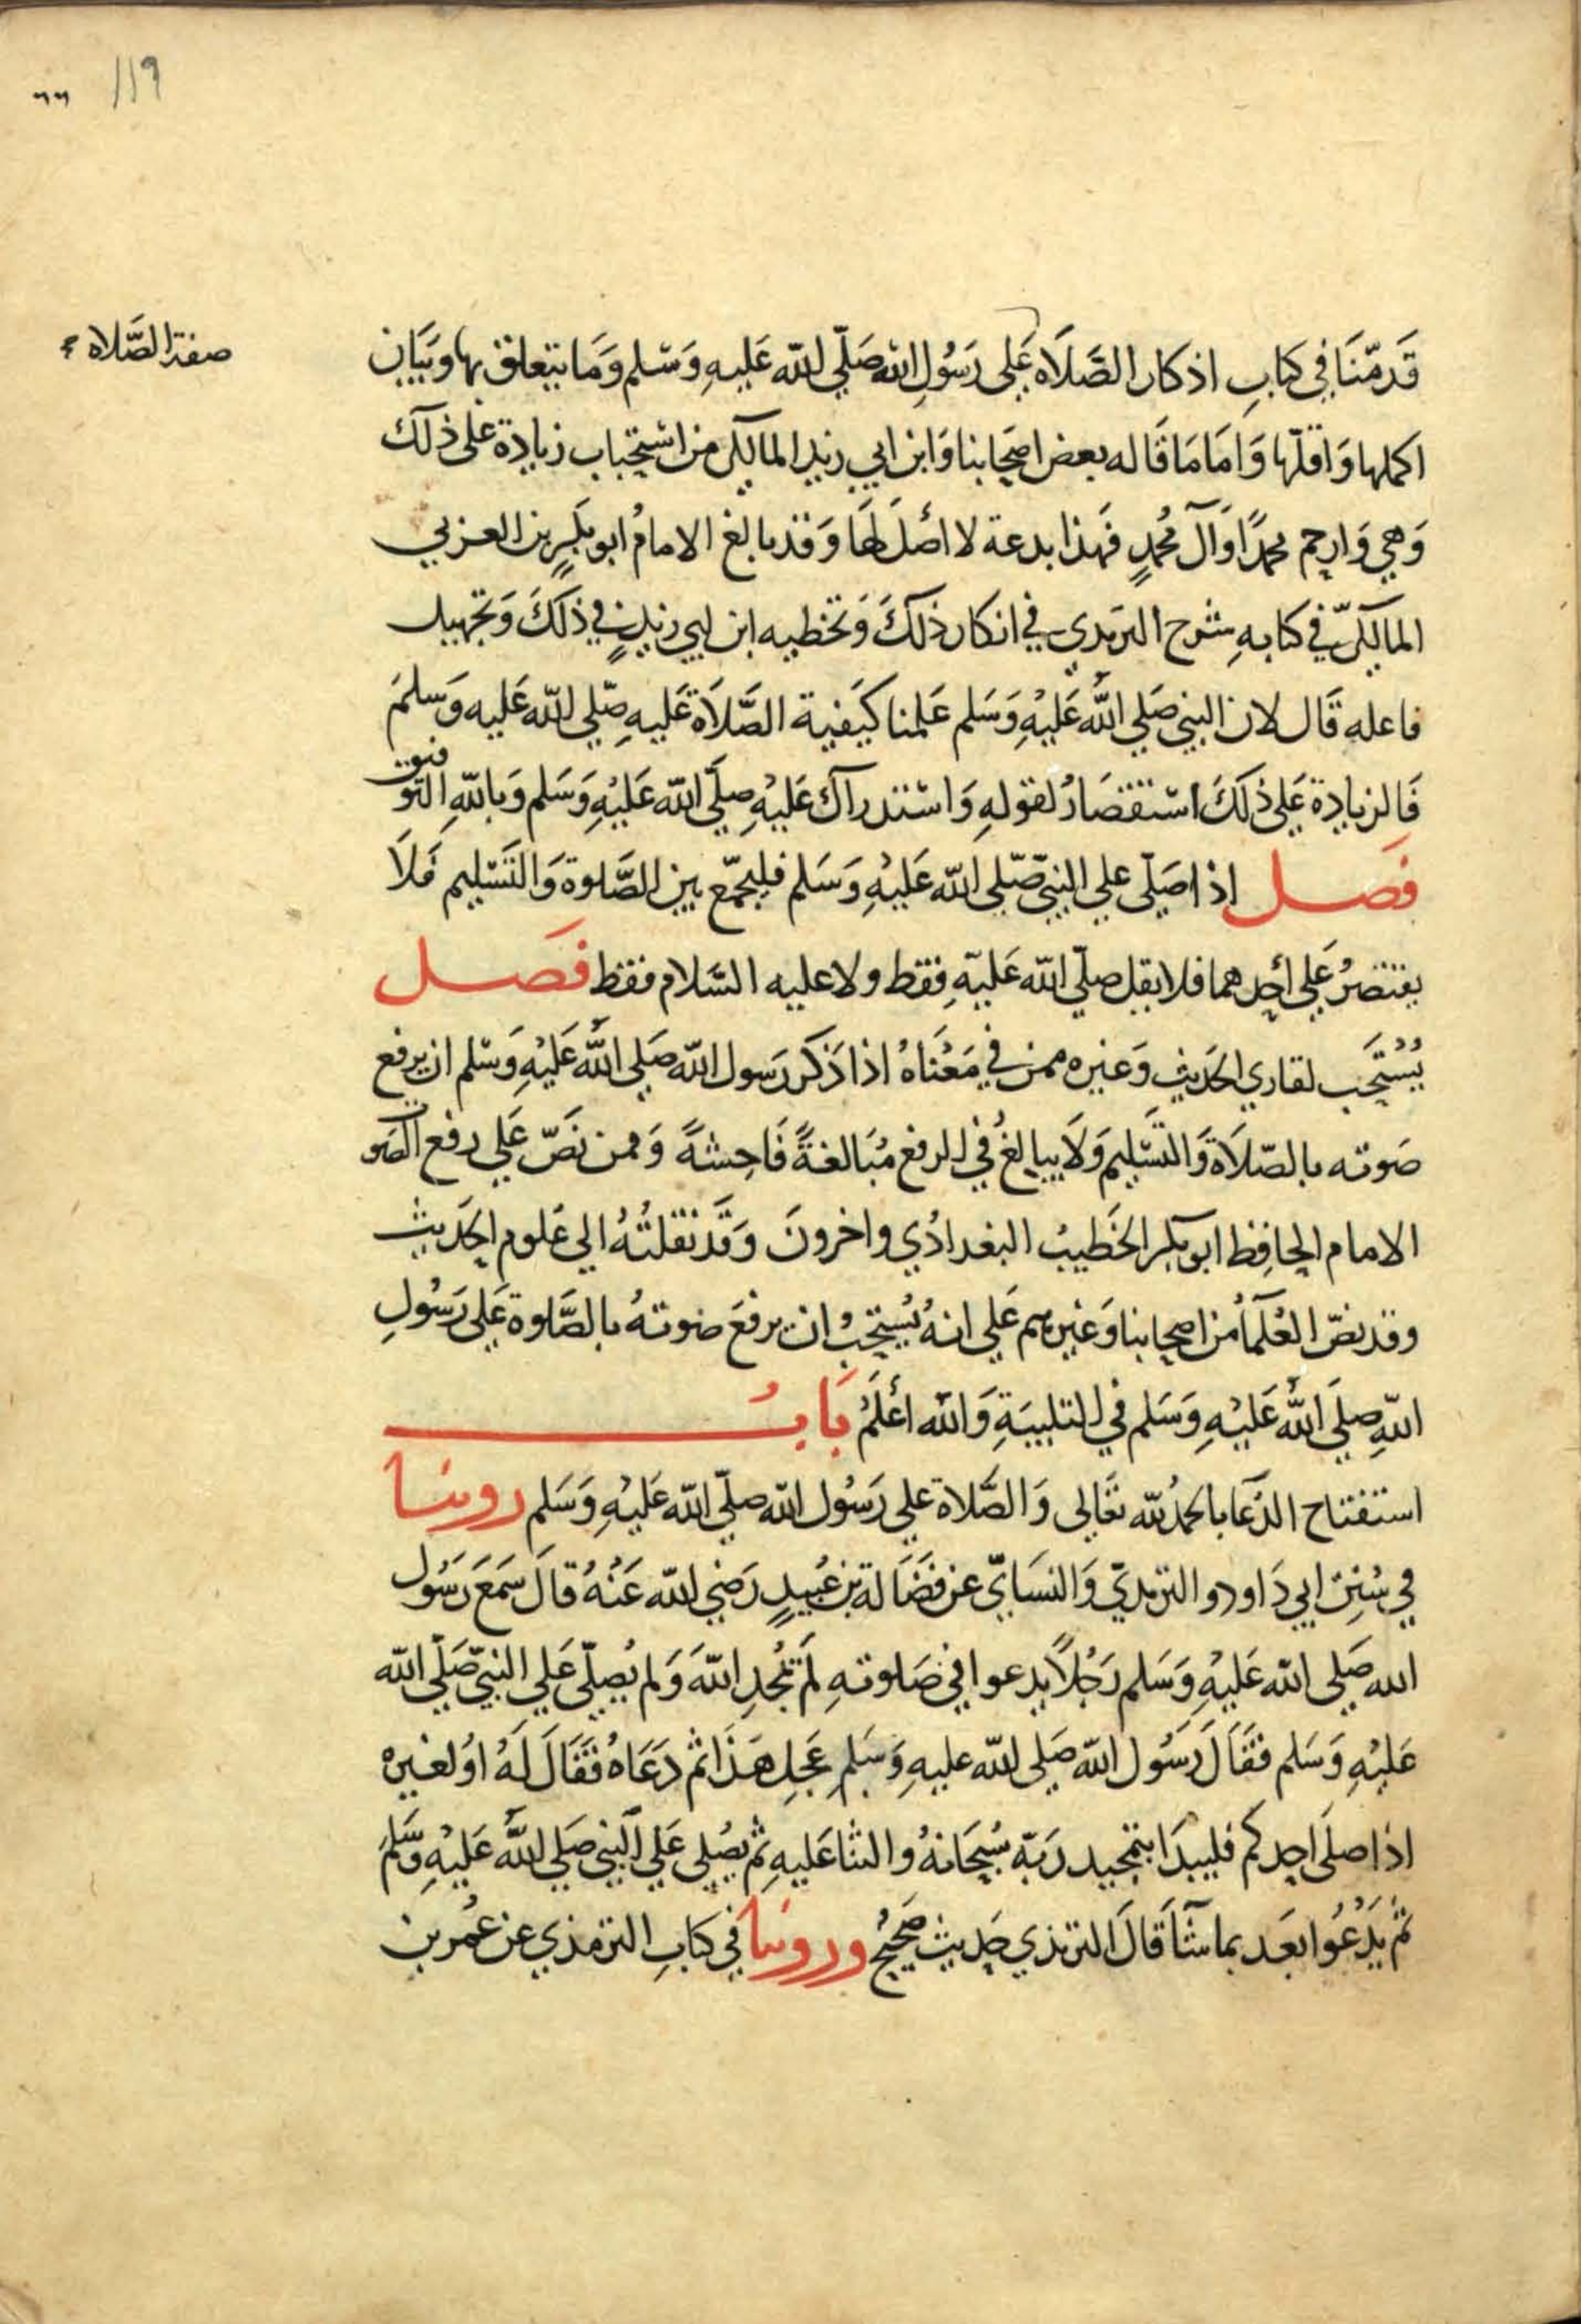 ١١٩
٦٦
صفة الصَّلاة
قَدمّنَا في كتابِ اذكار الصَّلَاة عَلى رَسُولِ الله صَلّي الله عَليهِ وَسَلم وَمَا يتعلق بها وبَيَان
اكملها وَاقلّها وَامَا مَا قَاله بعض اصحَابنا وَابن ابي زيد المالكي من استحباب زيادة على ذلك
وَهي وَارحم محمدًا وَآل محُمدٍ فهَذا بدعة لا اصْلَ لهَا وَقد بالغ الامامُ ابو بكرٍ بن العربي
المالكيّ في كتابهِ شرح الترمدي في انكار ذلكَ وَتخطيه ابن ابي زيدٍ في ذلكَ وَتجهيل
فاعله قَال لان النبي صَلي اللهُ عَليْهِ وَسَلم عَلمنا كيَفية الصَّلَاة عَليهِ صّلي الله عَليه وَسلمَ
فَالزيادة عَلي ذلكَ استقصَارُ لقولهِ وَاسْتدراك عَليْهِ صلّي الله عَليْهِ وَسَلم وَباللهِ التوفيق
فَصل اذا صَلّي علي النبيّ صّلي الله عَليْهِ وَسَلم فليجمّع بين الصَّلوة وَالتَسْليم فَلَا
يقتصرُ عَلي احدهما فلا يقل صلّي الله عَليْهِ فقط ولا عليه السَّلام فقط فَصل
يُسْتَحَب لقاري الحَديثِ وَغيره ممن في مَعْنَاهُ اذا ذكرَ رَسول الله صَلي اللهُ عَليْهِ وَسَلم ان يرفع
صَوته بالصّلَاة وَالتَسْليم وَلَا يبالغُ في الرفع مُبَالغةً فَاحِشةً وَممن نَصّ عَلي رفع الصَوت
الامام الحافِظ ابو بكر الخَطيبُ البغدادُي واخرونَ وَقَد نقلتُهُ الي عَلوم الحَديث
وقد نصّ العُلَمَاُ من اصحابنا وَغيرهم عَلي انهُ يُستحَبُ ان يرفعَ صَوتهُ بالصَّلوة عَلى رَسُولِ
اللهِ صلَي اللهُ عَليْهِ وَسَلم في التلبيَةِ وَالله اعْلَمُ بَابُ
استفتاح الدّعَا بالحمدُ لله تعَالى وَالصَّلاة علي رَسُول الله صلّي الله عَليْهِ وَسَلم روينا
في سُنَن ابي دَاود والترمديّ وَالنسَايّ عن فضَالة بن عُبيدٍ رَضي الله عَنْهُ قالَ سَمَعَ رَسُول
الله صَلي الله عَليْهِ وَسَلم رَجُلاً يدعوا في صَلوتهِ لمَ يمُجدِ اللهَ وَلم يُصلّي عَلي النبيّ صَلّي الله
عَليْهِ وَسَلم فقَالَ رَسُول الله صَلى الله عليهِ وَسَلمِ عَجل هَذَا ثم دَعَاهُ فقَالَ لَهُ اوْ لغيره
اذا صلَي احدكم فليبدَا بتمجيد رَبّهِ سُبحَانهُ والثنا عَليهِ ثم يصُلي عَلي النبي صَلي اللهُ عَليْهِ وَسَّلمَ
ثم يَدْعُوا بعَد بما شآ قَالَ الترمذي حَديث صَحيحُ وروينا في كتابِ الترمذي عن عُمر بن